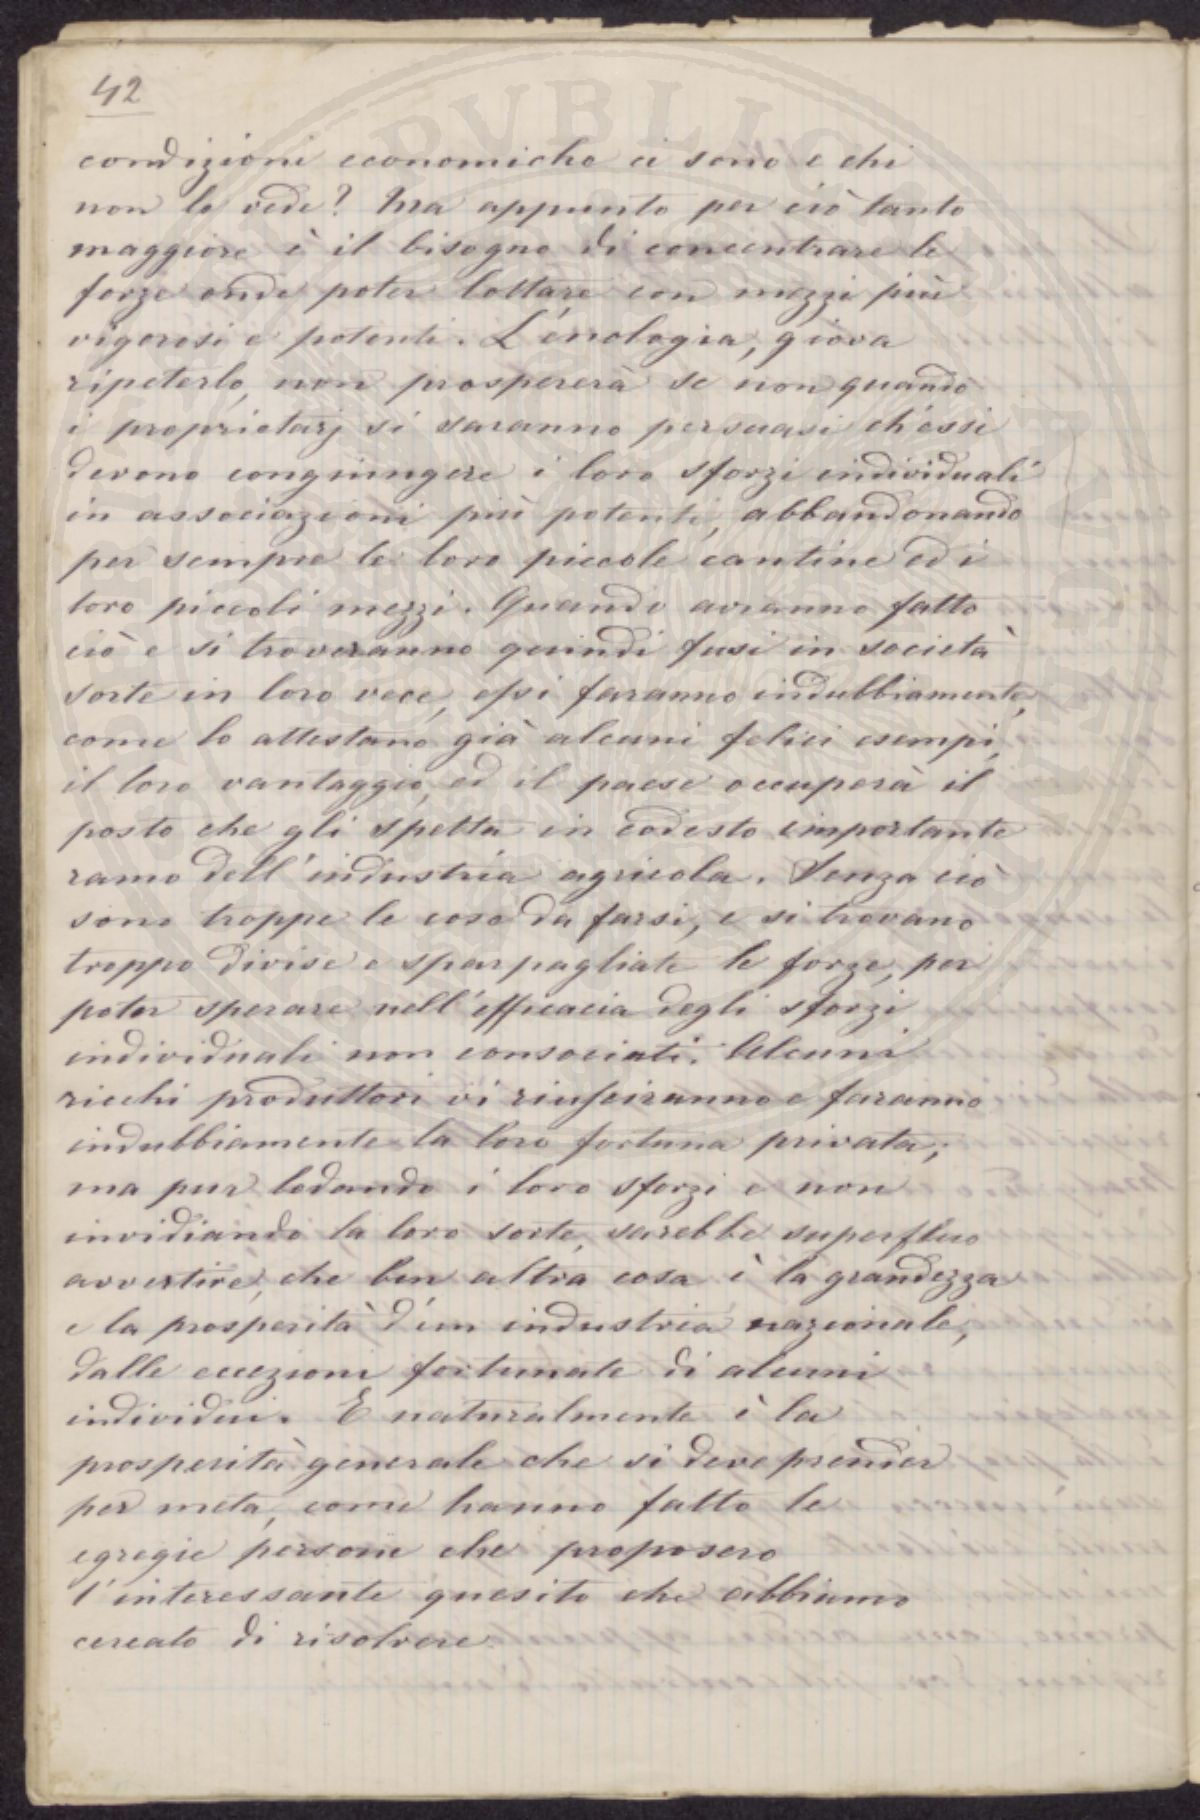 42
condizioni economiche ci sono e chi
non le vede? Ma appunto per ciò tanto
maggiore è il bisogno di concentrare le
forze onde poter lottare con mezzi più
vigorosi e potenti. L'enologia, giova
ripeterlo, non prospererà se non quando
i proprietarj si saranno persuasi ch'essi
devono congiungere i loro sforzi individuali
in associazioni più potenti, abbandonando
per sempre le loro piccole cantine ed i
loro piccoli mezzi. Quando avranno fatto
ciò e si troveranno quindi fusi in società
sorte in loro vece, essi faranno indubbiamente,
come lo attestano già alcuni felici esempi,
il loro vantaggio, ed il paese occuperà il
posto che gli spetta in codesto importante
ramo dell'industria agricola. Senza ciò
sono troppe le cose da farsi, e si trovano
troppo divise e sparpagliate le forze, per
poter sperare nell'efficacia degli sforzi
individuali non consociati. Alcuni
ricchi produttori vi riusciranno e faranno
indubbiamente la loro fortuna privata;
ma pur lodando i loro sforzi e non
invidiando la loro sorte, sarebbe superfluo
avvertire, che ben altra cosa è la grandezza
e la prosperità d'un industria nazionale,
dalle eccezioni fortunate di alcuni
individui. E naturalmente è la
prosperità generale che si deve prender
per meta, come hanno fatto le
egregie persone che proposero
l'interessante quesito che abbiamo
cercato di risolvere.